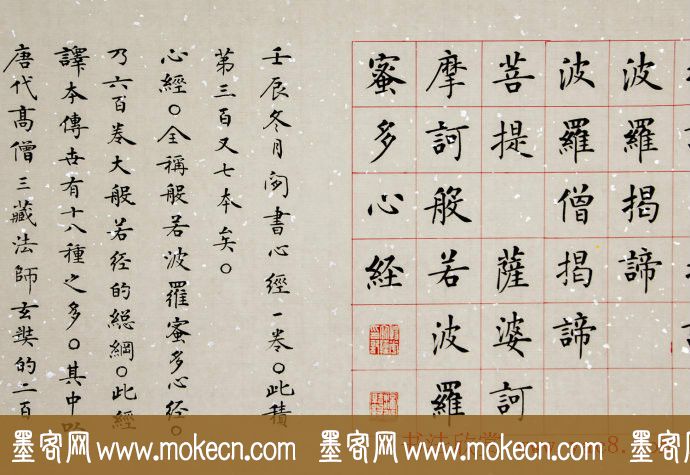 波羅揭諦
波羅僧揭諦
菩提 薩婆訶
摩訶般若波羅
蜜多心経
壬辰冬月書心經一卷。此積
第三百又七本矣。
心經。全稱般若波羅蜜多心经。
乃六百卷大般若经的総綱。此經
譯本傳世有十八種之多。其中
唐代高僧三藏法師玄奘的二百
墨客网 www.mokecn.com 墨客网 www.mokecn.com 墨客网